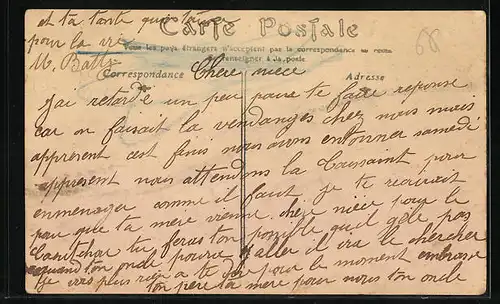 et ta tante
pour la vie
M. Batty
Carte Postale
68
Tous les pays étrangers n'acceptent pas la correspondance au recto
renseigner à la poste
Correspondance
Adresse
Chere niece
J'ai retardé un peu pour te faire reponse
car on faisait la vendanges chez nous mais
appresent cest finis nous avons entonner samedi
appresent nous attendons la Toussaint pour
enmenager comme il faut je te
pour que ta mere vienne. chère niece pour le
tu feras ton possible qu'il gèle pas
quand ton oncle pourra y aller il ira le chercher
Je vois plus rien a te dire pour le moment embrasse
ton père ta mere pour nous ton oncle